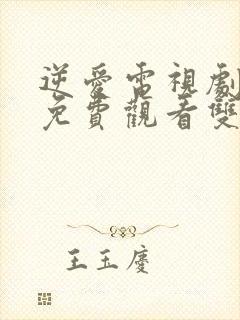 逆愛電視劇
免費觀看雙
王玉慶